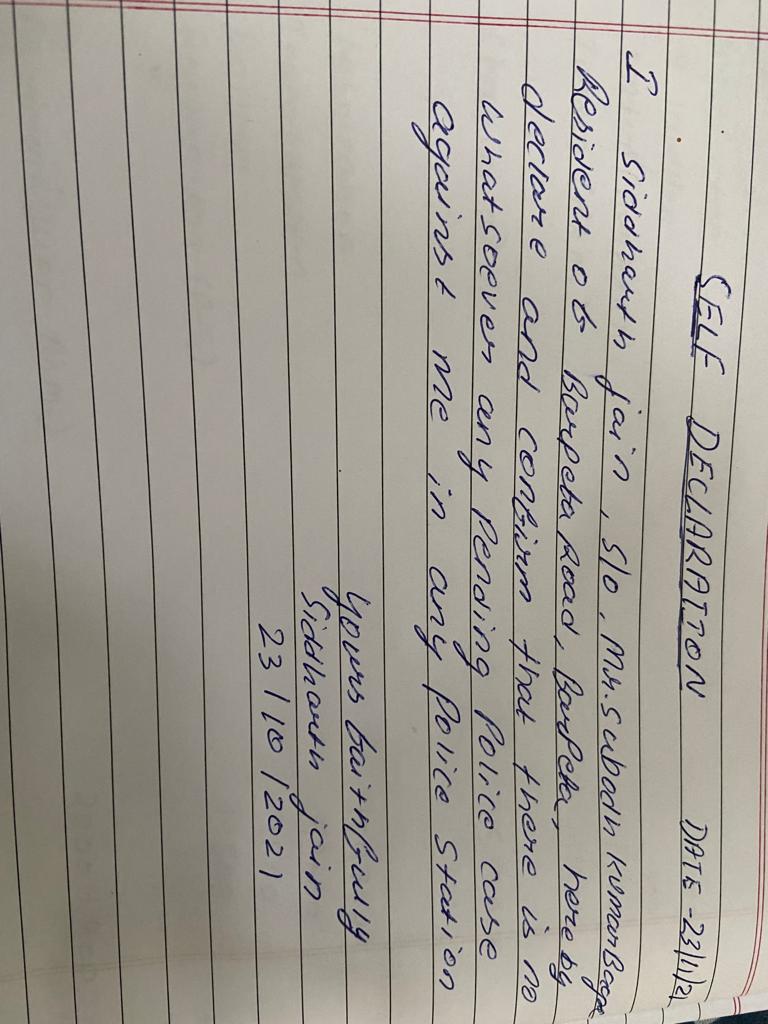 SELF DECLARATION DATE - 23/11/21
I Siddharth jain, S/o, Mr. Subodh kumar
Resident of Barpeta Road, Barpeta, here by
declare and confirm that there is no
whatsoever any Pending Police case
against me in any Police Station
Yours faithfully
Siddharth jain
23/10/2021